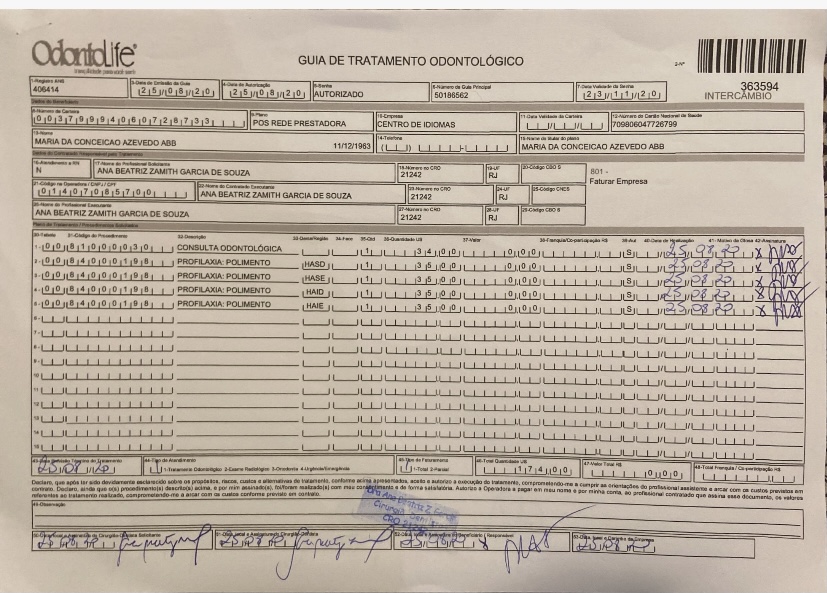 OdontoLife
GUIA DE TRATAMENTO ODONTOLÓGICO
2-Nº
363594
INTERCÂMBIO
1-Registro ANS
406414
3-Data de Emissão da Guia
25/08/20
4-Data de Autorização
25/08/20
5-Senha
AUTORIZADO
6-Número da Guia Principal
50186562
7-Data Validade da Senha
23/11/20
Dados do Beneficiário
8-Número da Carteira
9-Plano
POS REDE PRESTADORA
10-Empresa
CENTRO DE IDIOMAS
11-Data Validade da Carteira
12-Número do Cartão Nacional de Saúde
709806047726799
13-Nome
MARIA DA CONCEICAO AZEVEDO ABB
11/12/1963
14-Telefone
15-Nome do titular do plano
MARIA DA CONCEICAO AZEVEDO ABB
16-Atendimento a RN
N
17-Nome do Profissional Solicitante
ANA BEATRIZ ZAMITH GARCIA DE SOUZA
18-Número no CRO
21242
19-UF
RJ
20-Código CBO S
801 -
Faturar Empresa
21-Código na Operadora / CNPJ / CPF
01407085700
22-Nome do Contratado Executante
ANA BEATRIZ ZAMITH GARCIA DE SOUZA
23-Número no CRO
21242
24-UF
RJ
25-Código CNES
26-Nome do Profissional Executante
ANA BEATRIZ ZAMITH GARCIA DE SOUZA
27-Número no CRO
21242
28-UF
RJ
29-Código CBO S
30-Tabela 31-Código do Procedimento 32-Descrição 33-Dente/Região 34-Face 35-Qtd 36-Quantidade US 37-Valor 38-Franquia/Co-participação R$ 39-Aut 40-Data de Realização 42-Assinatura
1 - 00 81000030 CONSULTA ODONTOLÓGICA 1 34,00 0,00 S 25/08/20 X
2 - 00 84000198 PROFILAXIA: POLIMENTO HASD 1 35,00 0,00 S 25/08/20 X
3 - 00 84000198 PROFILAXIA: POLIMENTO HASE 1 35,00 0,00 S 25/08/20 X
4 - 00 84000198 PROFILAXIA: POLIMENTO HAID 1 35,00 0,00 S 25/08/20 X
5 - 00 84000198 PROFILAXIA: POLIMENTO HAIE 1 35,00 0,00 S 25/08/20 X
6 -
7 -
8 -
9 -
10 -
11 -
12 -
13 -
14 -
15 -
25/08/20
44-Tipo de Atendimento
1-Tratamento Odontológico 2-Exame Radiológico 3-Ortodontia 4-Urgência/Emergência
45-Tipo de Faturamento
1-Total 2-Parcial
46-Total Quantidade US
174,00
47-Valor Total R$
0,00
48-Total Franquia / Co-participação R$
Declaro, que após ter sido devidamente esclarecido sobre os propósitos, riscos, custos e alternativas de tratamento, conforme acima apresentados, aceito e autorizo a execução do tratamento, comprometendo-me a cumprir as orientações do profissional assistente e arcar com os custos previstos em
contrato. Declaro, ainda que o(s) procedimento(s) descrito(s) acima, e por mim assinado(s), foi/foram realizado(s) com meu consentimento e de forma satisfatória. Autorizo a Operadora a pagar em meu nome e por minha conta, ao profissional contratado que assina esse documento, os valores
referentes ao tratamento realizado, comprometendo-me a arcar com os custos conforme previsto em contrato.
49-Observação
25/08/20
25/08/20
25/08/20 X
25/08/20